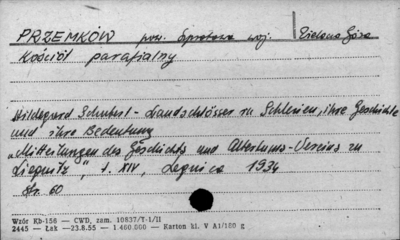 PRZEMKÓW pow. Szprotawa woj. Zielona Góra
Kościół parafialny
Hildegard Schubert - Landschlösser in Schlesien, ihre Geschichte
und ihre Bedeutung
„Mitteilungen des Geschichts und Altertums-Vereins zu
Liegnitz", t. XIV, Legnica 1934
Str. 60
Wzór Kb-156 — CWD, zam. 10837/T-1/II
2445 — Łak —23.8.55 — 1 400.000 — Karton kl. V A1/180 g